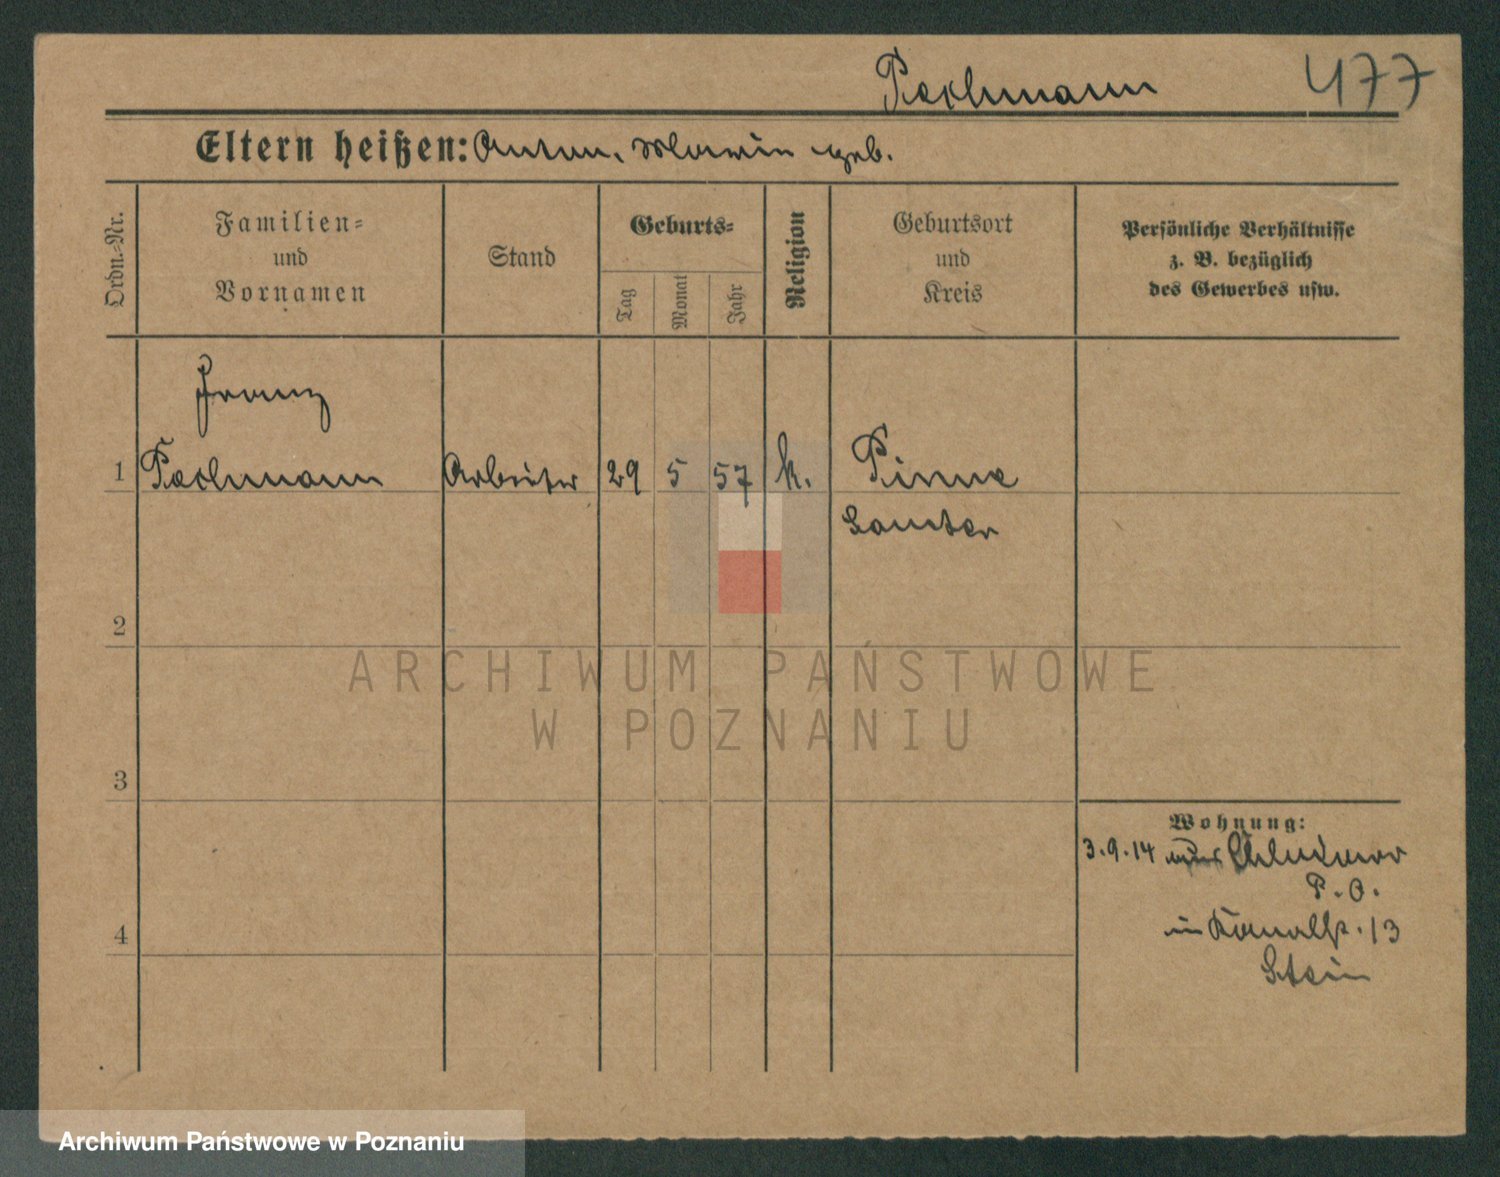 Pachmann 477
Eltern heißen: Anton, Marie geb.
Ordn.=Nr.
Familien=
und
Vornamen
Stand
Geburts=
Tag
Monat
Jahr
Religion
Geburtsort
und
Kreis
Persönliche Verhältnisse
z. B. bezüglich
des Gewerbes usw.
Franz
1 Pachmann Arbeiter 29 5 57 k. Pinne
Samter
2
ARCHIWUM PAŃSTWOWE
W POZNANIU
3
Wohnung:
3.9.14 aus
P. O.
in Kanalstr. 13
Stein
4
Archiwum Państwowe w Poznaniu